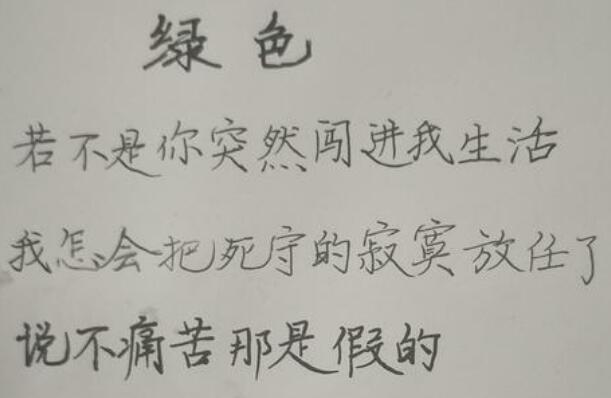 绿色
若不是你突然闯进我生活
我怎会把死守的寂寞放任了
说不痛苦那是假的